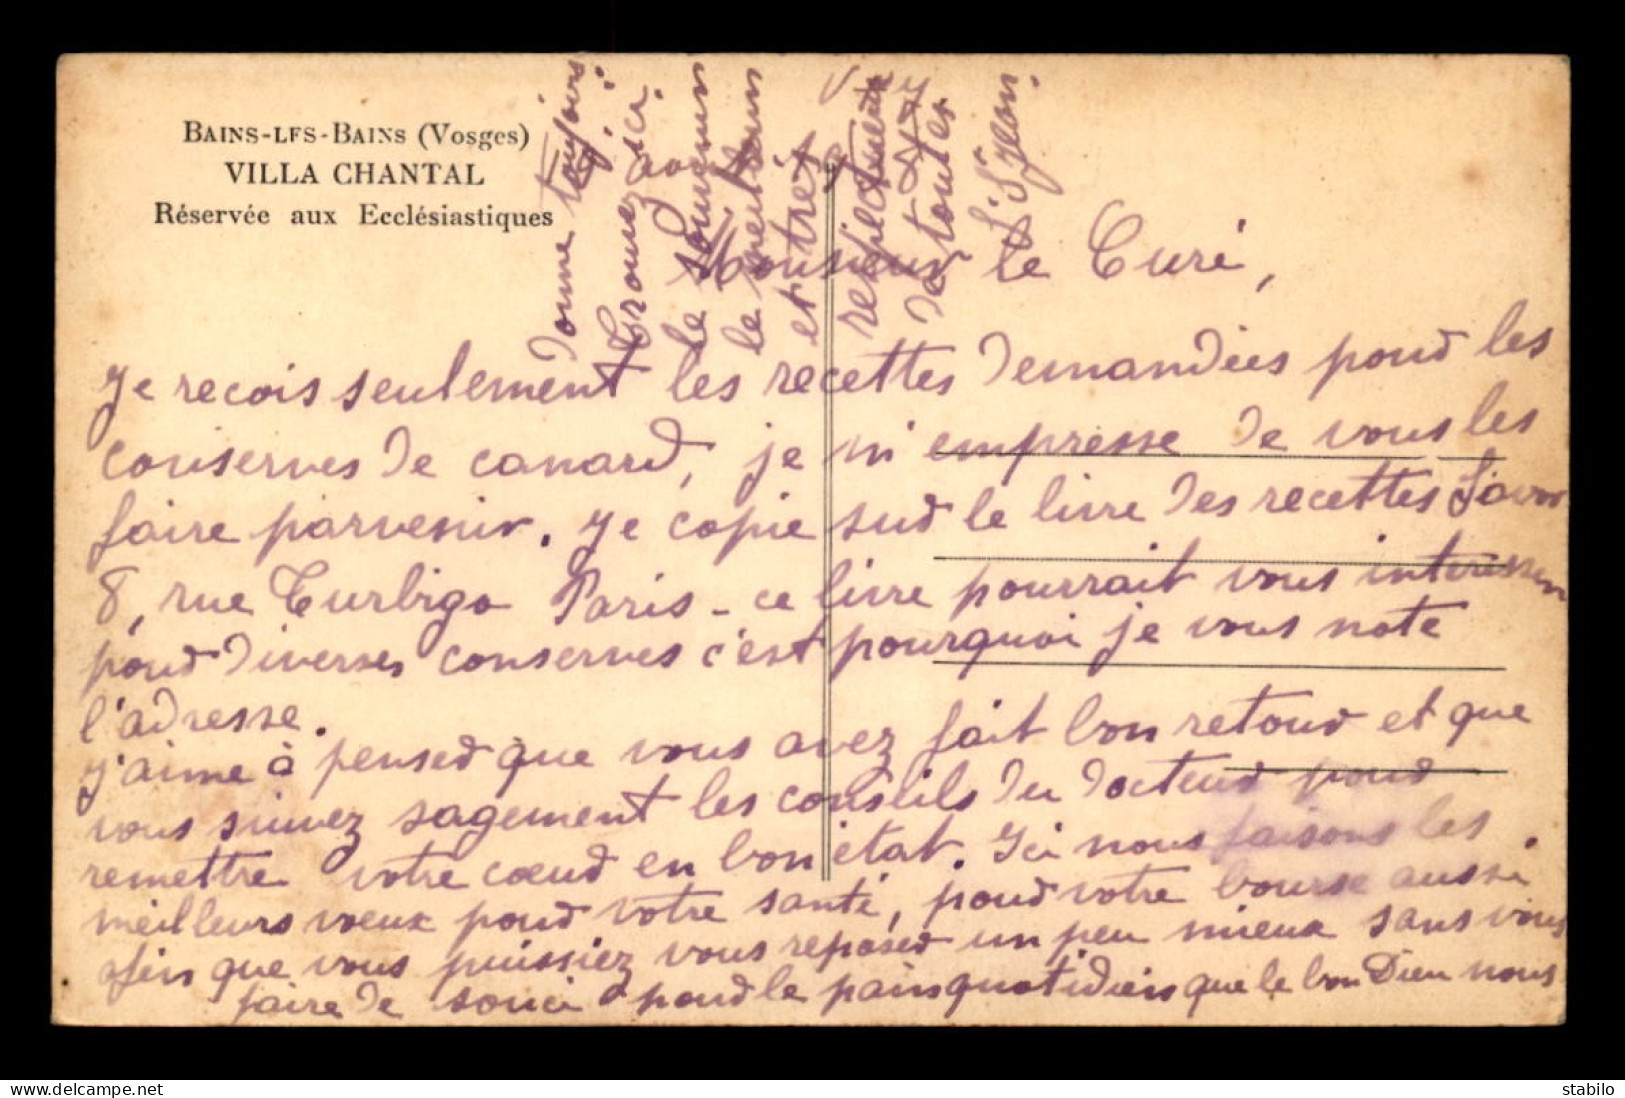 BAINS-LES-BAINS (Vosges)
VILLA CHANTAL
Réservée aux Ecclésiastiques
Monsieur le Curé,
Je reçois seulement les recettes demandées pour les
conserves de canard, je m'empresse de vous les
faire parvenir. Je copie sur le livre des recettes
8, rue Turbigo Paris - ce livre pourrait vous intéresser
pour diverses conserves c'est pourquoi je vous note
l'adresse.
J'aime à penser que vous avez fait bon retour et que
vous suivez sagement les conseils du docteur pour
remettre votre cœur en bon état. Ici nous faisons les
meilleurs vœux pour votre santé, pour votre bourse aussi
afin que vous puissiez vous reposer un peu mieux sans vous
faire de souci pour le pain quotidien que le bon Dieu nous
donne toujours
Trouvez ici
le souvenir
le meilleur
et très
respectueux
de toutes
Delcampe.net
stabilo